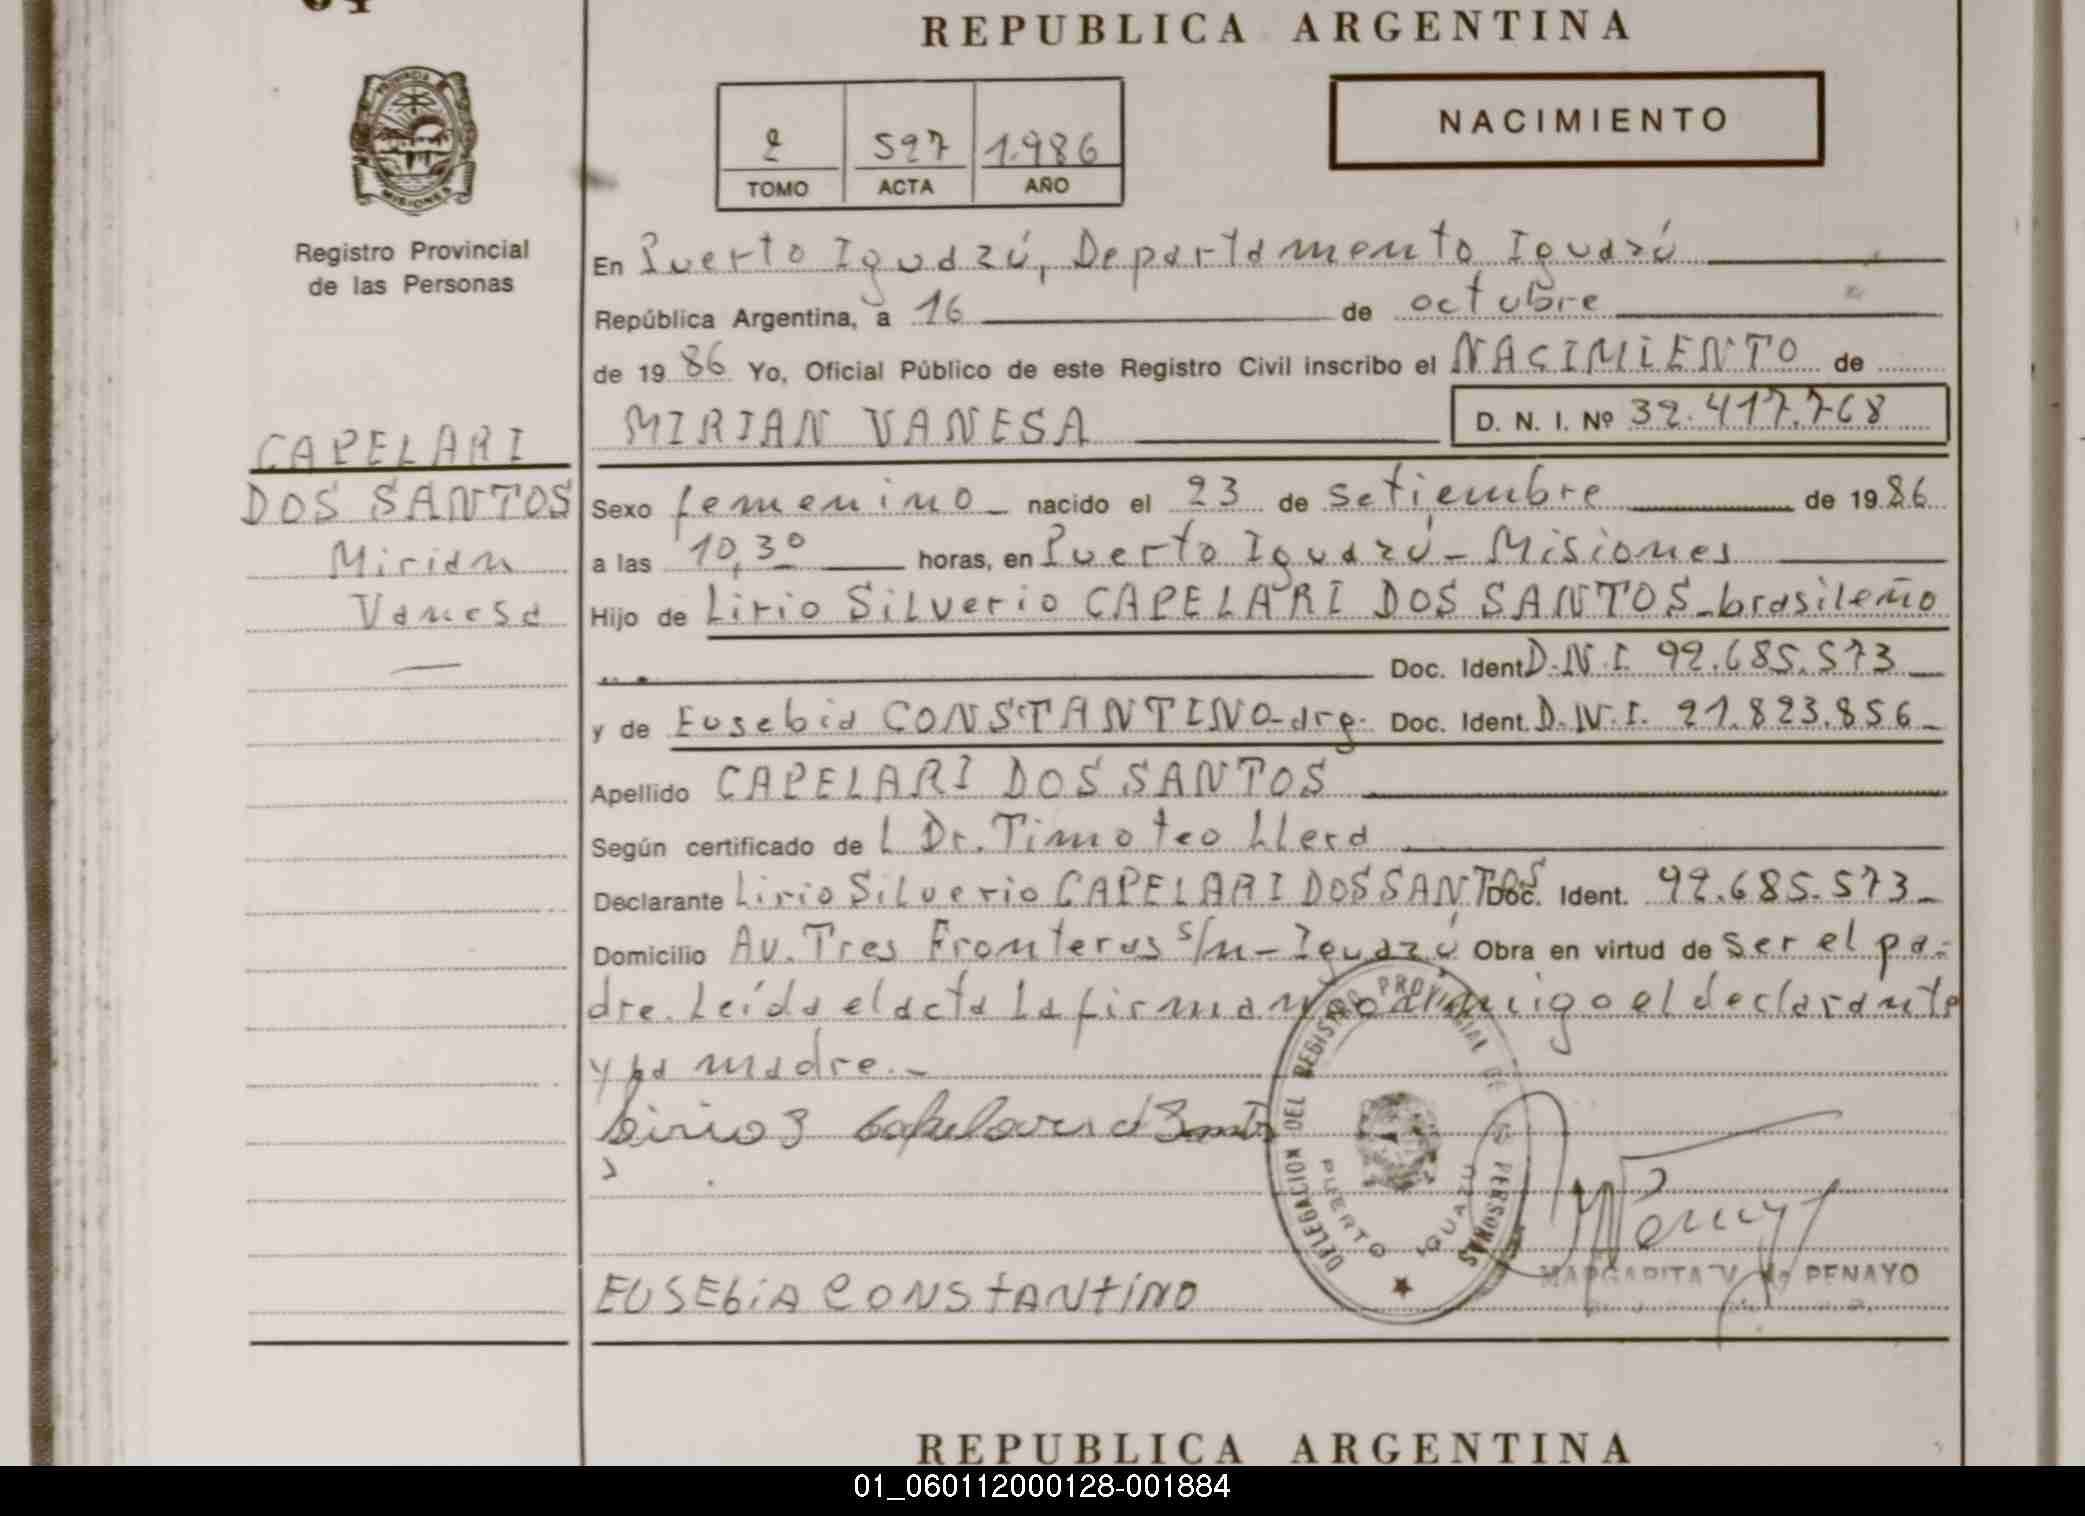 REPUBLICA ARGENTINA
NACIMIENTO
2 527 1.986
TOMO ACTA AÑO
PROVINCIA
MISIONES
Registro Provincial
de las Personas
En Puerto Iguazú, Departamento Iguazú
República Argentina, a 16 de octubre
de 19 86 Yo, Oficial Público de este Registro Civil inscribo el NACIMIENTO de
MIRIAN VANESA D. N. I. Nº 32.417.768
CAPELARI
DOS SANTOS
Mirian
Vanesa
Sexo femenino nacido el 23 de setiembre de 19 86
a las 10,30 horas, en Puerto Iguazú - Misiones
Hijo de Lirio Silverio CAPELARI DOS SANTOS - brasileño
Doc. Ident. D.N.I. 92.685.573
y de Eusebia CONSTANTINO - arg. Doc. Ident. D.N.I. 21.823.856
Apellido CAPELARI DOS SANTOS
Según certificado de L Dr. Timoteo Llera
Declarante Lirio Silverio CAPELARI DOS SANTOS Doc. Ident. 92.685.573
Domicilio Av. Tres Fronteras s/n - Iguazú Obra en virtud de ser el pa-
dre. Leída el acta la firman conmigo el declarante
y la madre.-
Lirio S Capelari d Santos
DELEGACION DEL REGISTRO PROVINCIAL DE PERSONAS
PUERTO IGUAZU
EUSEbiA CONStANtiNO
MARGARITA V. PENAYO
REPUBLICA ARGENTINA
01_060112000128-001884